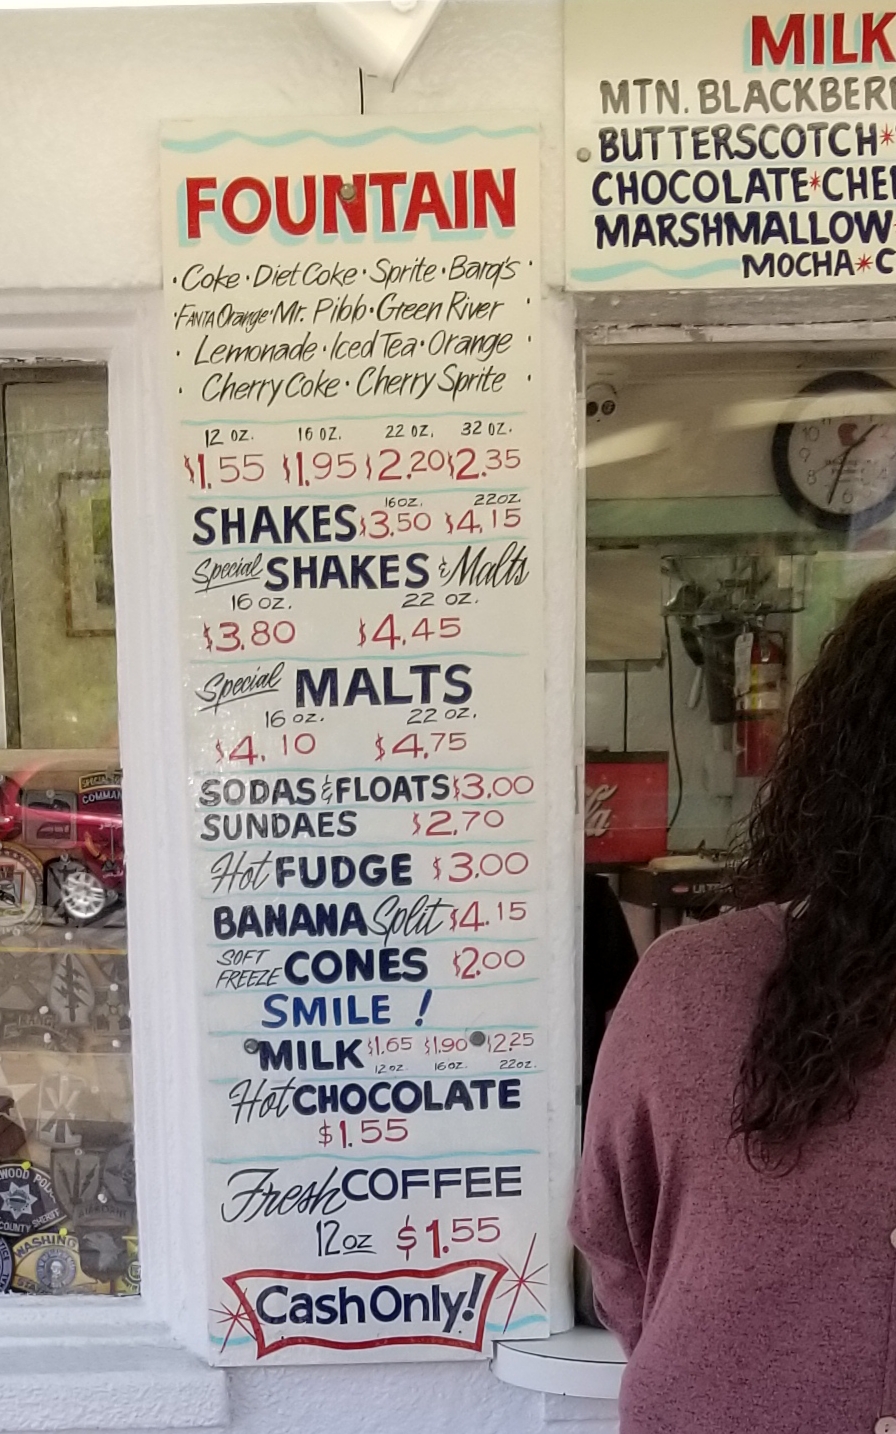 FOUNTAIN
·Coke·Diet Coke·Sprite·Barq's·
·FANTA Orange·Mr. Pibb·Green River
·Lemonade·Iced Tea·Orange·
·Cherry Coke·Cherry Sprite·
12 OZ. 16 OZ. 22 OZ. 32 OZ.
$1.55 $1.95 $2.20 $2.35
16 OZ. 22 OZ.
SHAKES $3.50 $4.15
Special SHAKES & Malts
16 OZ. 22 OZ.
$3.80 $4.45
Special MALTS
16 OZ. 22 OZ.
$4.10 $4.75
SODAS & FLOATS $3.00
SUNDAES $2.70
Hot FUDGE $3.00
BANANA Split $4.15
SOFT FREEZE CONES $2.00
SMILE !
MILK $1.65 $1.90 $2.25
12 OZ 16 OZ. 22 OZ.
Hot CHOCOLATE
$1.55
Fresh COFFEE
12 oz $1.55
Cash Only!
MILK
MTN. BLACKBER
BUTTERSCOTCH*
CHOCOLATE*CHE
MARSHMALLOW
MOCHA*C
10
9
8
6
la
ULT
SPECIAL
COMMAN
WOOD POL
COUNTY SHERIFF
WASHING